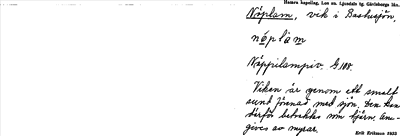 Hamra kapellag, Los sn. Ljusdals tg. Gävleborgs län.
Näplam, vik i Bastusjön,
näplam
Näppilampiv. G 108.
Viken är genom ett smalt
sund förenad med sjön. Den kan
därför betecknas som tjärn. Om-
gives av myrar.
Erik Erikson 1935